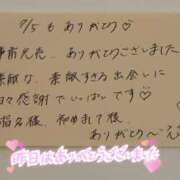 7/5も ありがとう♡
ありがとうございました
素敵な、素敵すぎる出会いに
日々感謝でいっぱいです♡
初めまして様
ありがとう〜
昨日はありがとうございました